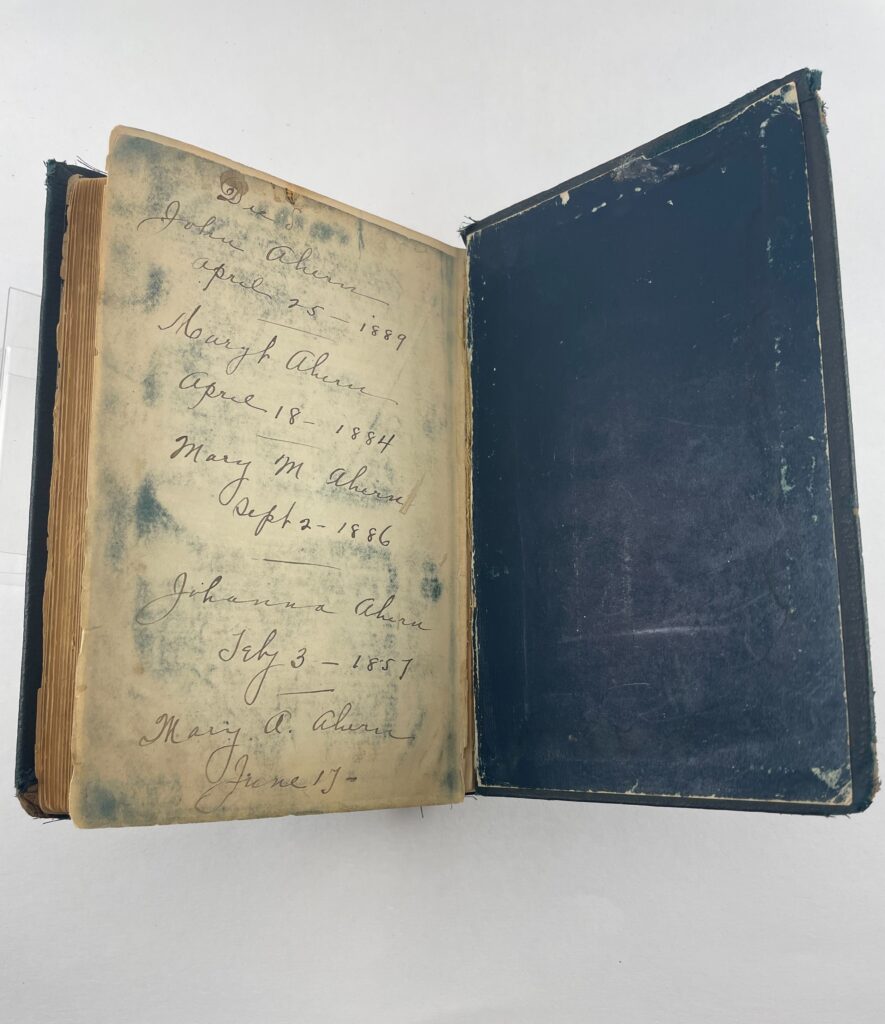 Died
John Ahern
april 25 - 1889
Mary t Ahern
April 18 - 1884
Mary M Ahern
Sept 2 - 1886
Johanna Ahern
Feby 3 - 1857
Mary. A. Ahern
June 17 -